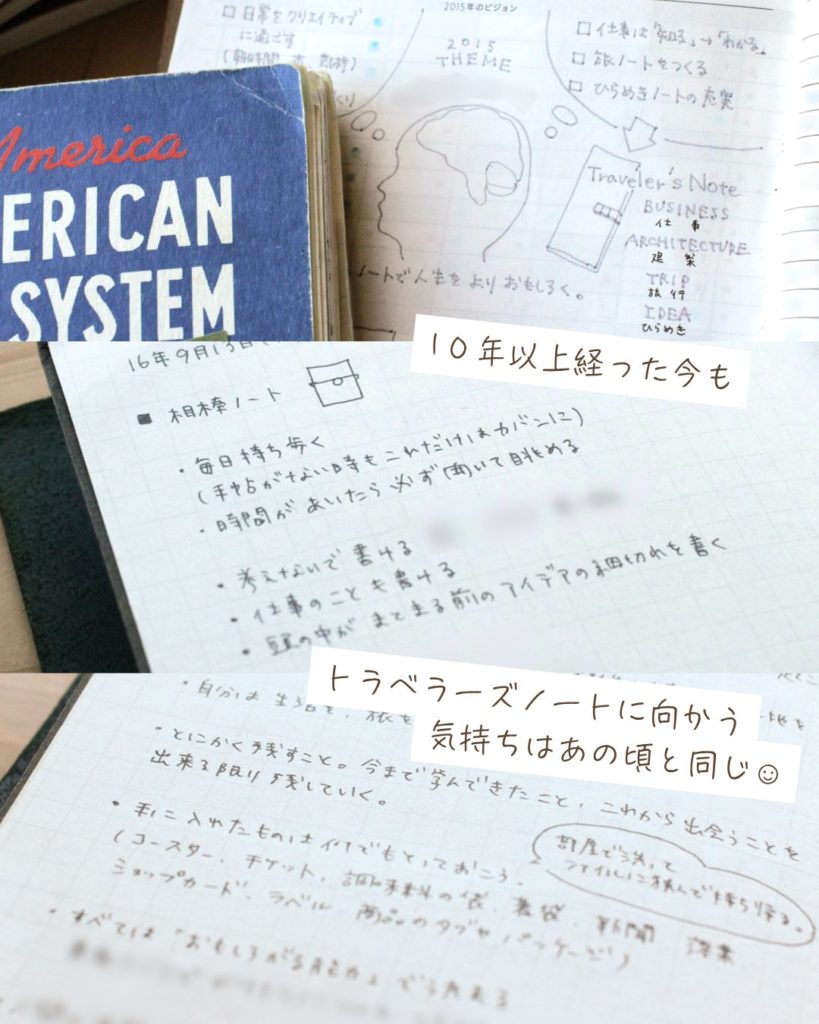 2015年のビジョン
□ 日常をクリエイティブ
に過ごす
2015
THEME
□ 仕事は「知る」→「わかる」
□ 旅ノートをつくる
□ ひらめきノートの充実
America
ERICAN
SYSTEM
Traveler's Note
BUSINESS
仕事
ARCHITECTURE
建築
TRIP
旅行
IDEA
ひらめき
ノートで人生をよりおもしろく。
10年以上経った今も
16年9月13日
■ 相棒ノート
・毎日持ち歩く
(手帖がない時もこれだけはカバンに)
・時間があいたら必ず開いて眺める
・考えないで書ける
・仕事のことも書ける
・頭の中がまとまる前のアイデアの細切れを書く
トラベラーズノートに向かう
気持ちはあの頃と同じ☺
・自分は
・とにかく残すこと。今まで学んできたこと、これから出会うことを
出来る限り残していく。
・手に入れたものは何でもとっておこう。
(コースター、チケット、調味料の袋、箸袋、新聞
ショップカード、ラベル、商品のタグやパッケージ)
部屋で洗って
ファイルに挟んで持ち帰る。
・すべては「おもしろがる能力」で